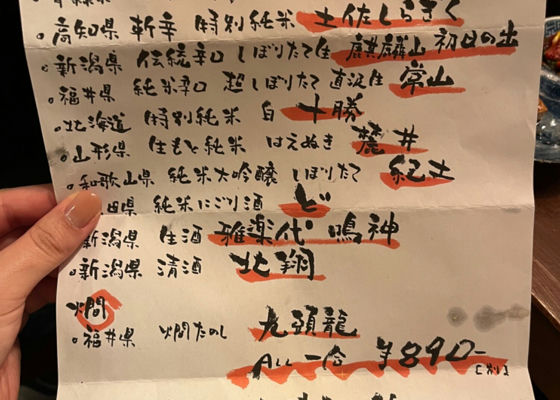 高知県 斬辛 特別純米 土佐しらぎく
新潟県 伝統辛口 しぼりたて生 麒麟山 初日の出
福井県 純米辛口 超しぼりたて 直汲生 常山
北海道 特別純米 白 十勝
山形県 生もと純米 はえぬき 麓井
和歌山県 純米大吟醸 しぼりたて 紀土
田県 純米にごり酒 ど
新潟県 生酒 雅楽代 鳴神
新潟県 清酒 北翔
燗
福井県 燗たのし 九頭龍
ALL 一合 ¥890-